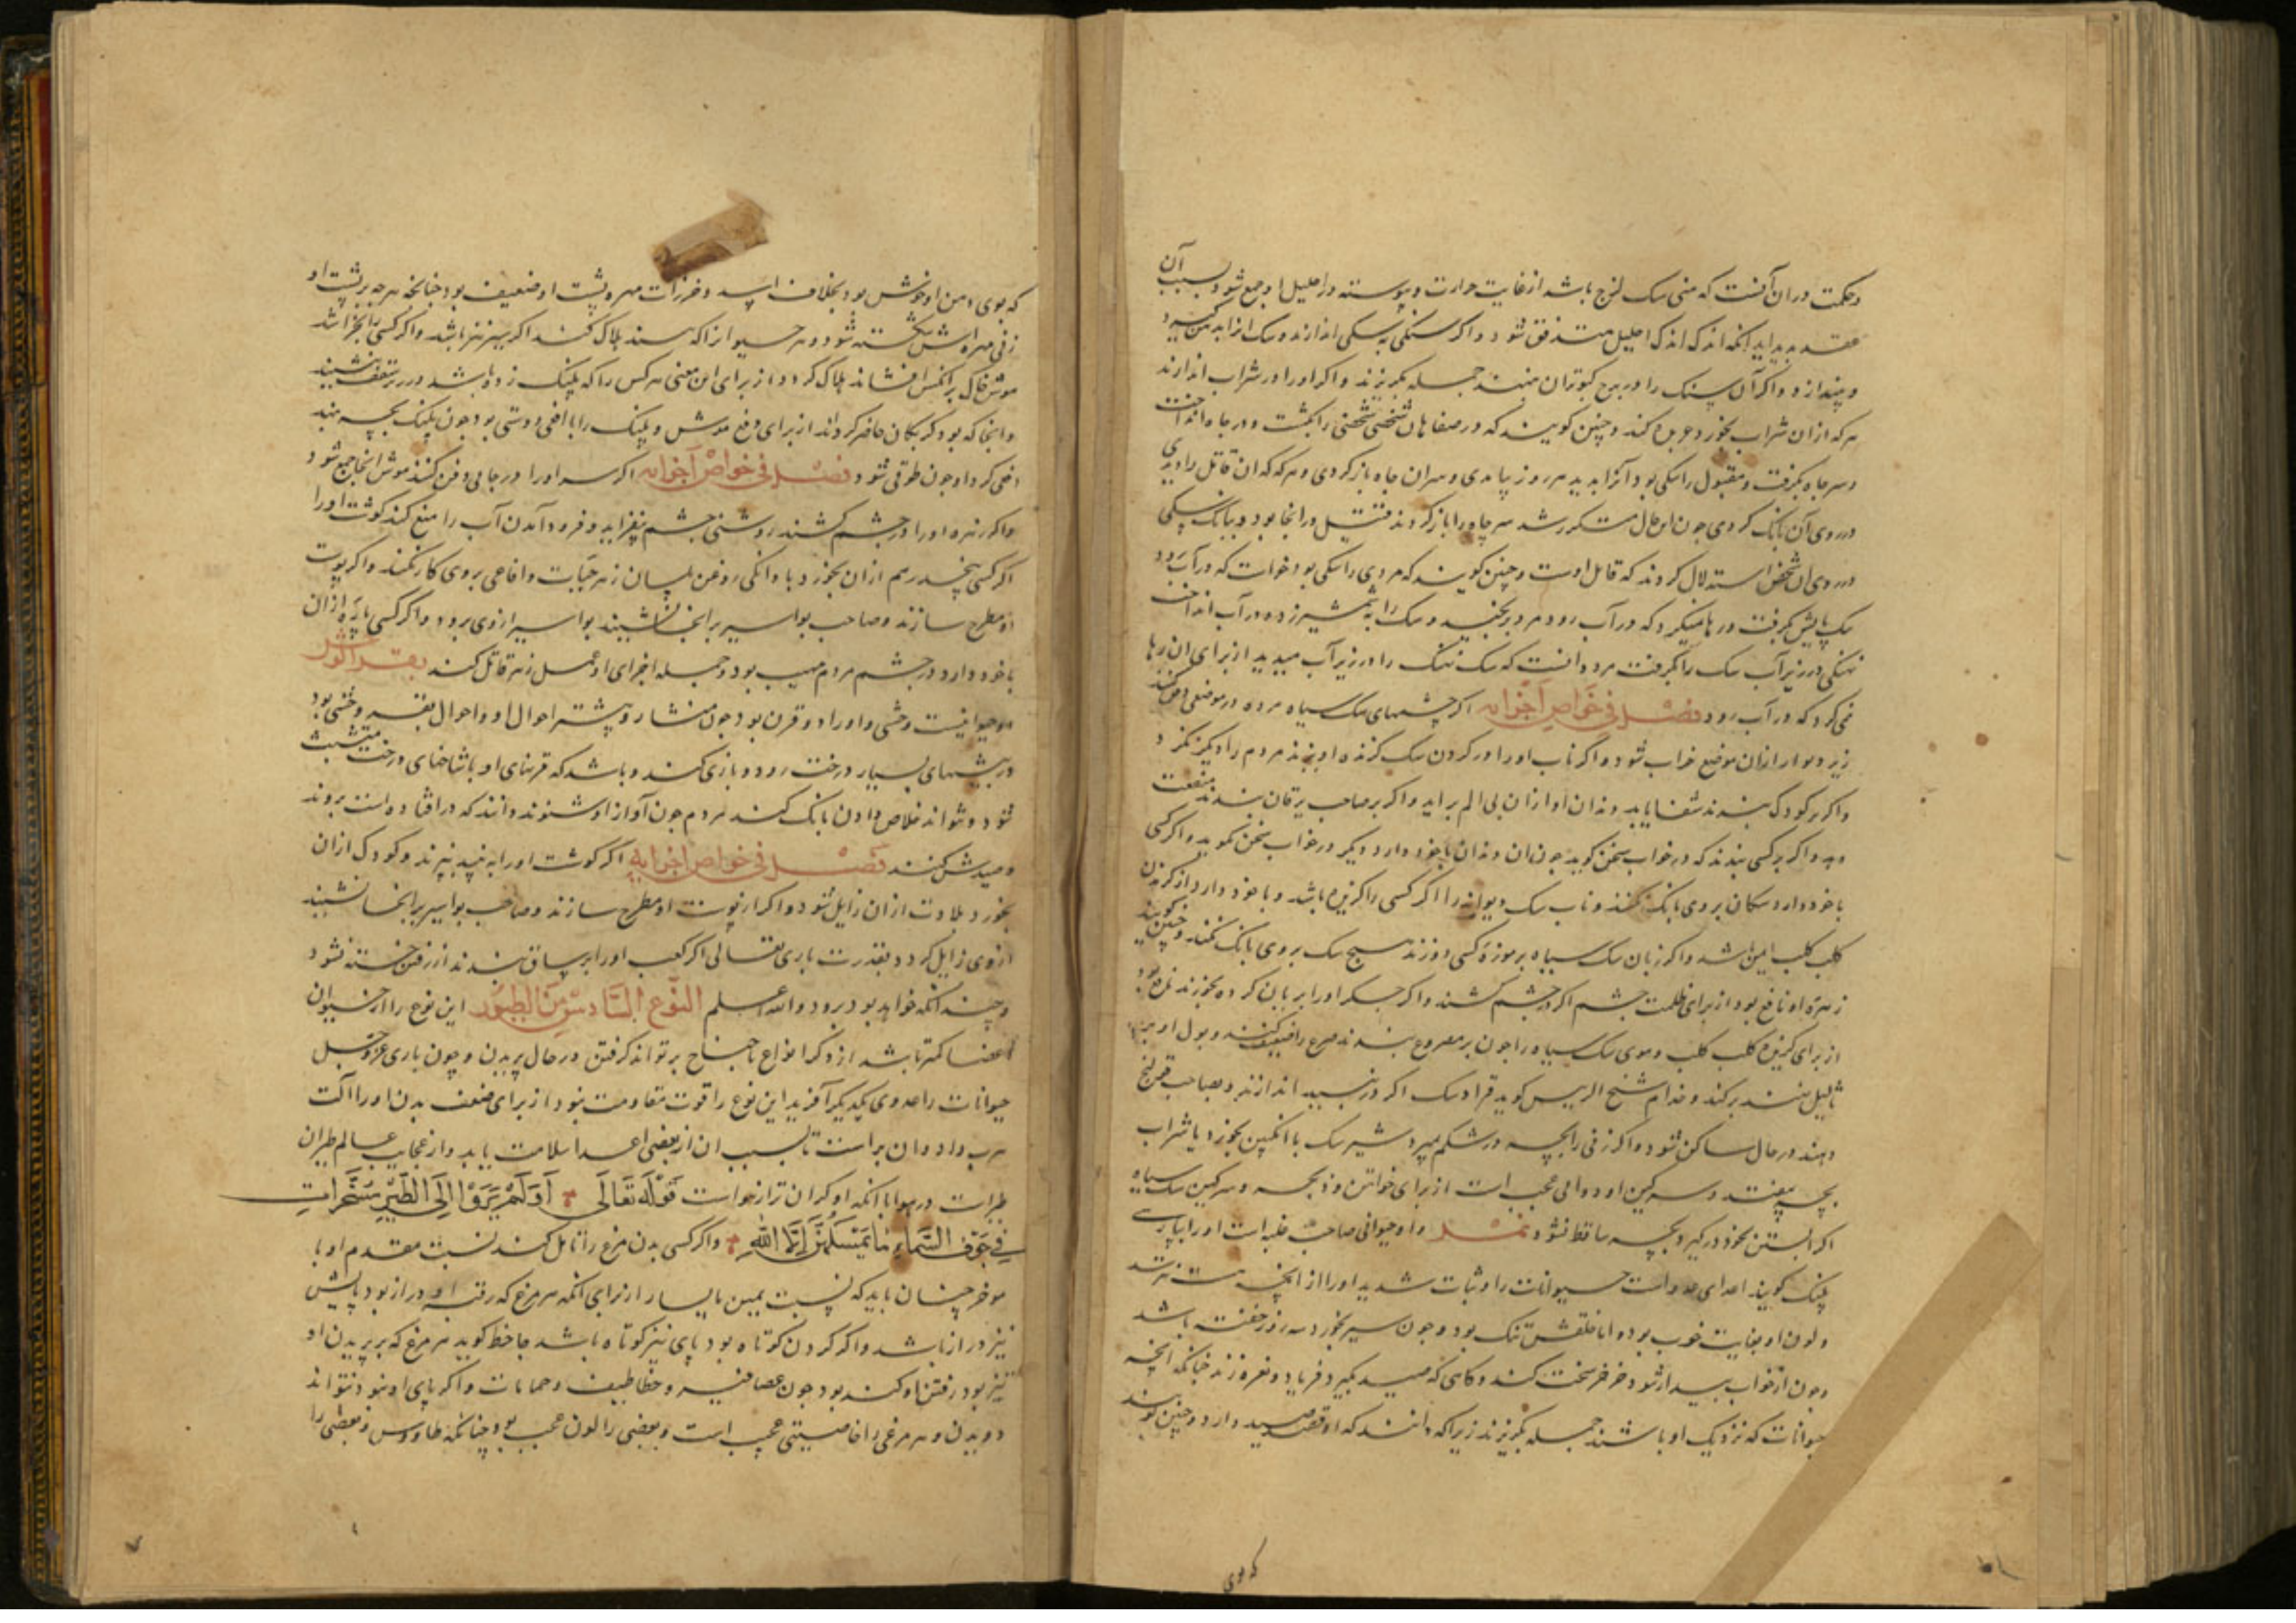 و حکمت در ان آنست که منی سک لزج باشد از غایت حرارت و پیوسته در احلیل او جمع شود و بسبب آن
عقده پدید اید انکه اندک اندک از احلیل متدفق شود و اکر سنکی به سکی اندازند و سک انرا بدهن کیرد
و بیندازد و اکر آن سنک را در برج کبوتران نهند جمله بکریزند و اکر او را در شراب اندازند
هر که ازان شراب بخورد عربده کند و چنین کویند که در صفاهان شخصی شخصی را بکشت و در چاه انداخت
و سر چاه بکرفت و مقتول را سکی بود آنرا بدید هر روز بیامدی و سر ان چاه باز کردی و هر که که ان قاتل را دیدی
در روی آن بانک کردی چون این حال متکرر شد سر چاه را باز کردند قتیل در انجا بود و ببانک سکی
در روی ان شخص استدلال کردند که قاتل اوست و چنین کویند که مردی را سکی بود خواست که در آب رود
سک پایش بکرفت و رها نمیکرد که در آب رود مرد برنجید و سک را بشمشیر زد و در آب انداخت
نهنکی در زیر آب سک را بکرفت مرد دانست که سک نهنک را در زیر آب میدید از برای ان رها
نمی کرد که در آب رود فصل في خواص اجزائه اکر چشمهای سک سیاه مرده در موضعی دفن کنند
زیر دیوار ازان موضع خراب شود و اکر ناب او را در کردن سک کزنده اویزند مردم را دیکر نکزد
و اکر بر کودک بندند شفا یابد دندان او ازان بی الم براید و اکر بر صاحب یرقان بندند منفعت
دهد و اکر بر کسی بندند که در خواب سخن کوید چون ان دندان با خود دارد دیکر در خواب سخن نکوید و اکر کسی
با خود دارد سکان بر وی بانک نکنند و ناب سک دیوانه را اکر کسی را کزیده باشد و با خود دارد از کزیدن
کلب کلب ایمن باشد و اکر زبان سک سیاه بر موزه کسی دوزند هیچ سک بر وی بانک نکند و چنین کویند
زهره او نافع بود از برای ظلمت چشم اکر در چشم کشند و اکر جکر او را بریان کرده بخورند نافع بود
از برای کزیده کلب کلب و موی سک سیاه را چون بر مصروع بندند صرع را ضعیف کند و بول او بر
ثآلیل نهند برکند و ندام شیخ الرییس کوید قراد سک اکر در نبیذ اندازند و بصاحب قولنج
دهند در حال ساکن شود و اکر زنی را بچه در شکم بمیرد شیر سک با انکبین بخورد یا شراب
بچه بیفتد و سرکین او دوایی عجب است از برای خوانیق و ذبحه و سرکین سک سیاه
اکر ابستن بخود برکیرد بچه ساقط شود نمر و او حیوانی صاحب غلبه است او را بپارسی
پلنک کویند اعدای عدو است حیوانات را وثبات شدید او را از هیچ نترسد
و لون او بغایت خوب بود و اما خلقش تنک بود و چون سیر بخورد سه روز خفته باشد
و چون از خواب بیدار شود خرخر سخت کند و کاهی که صید بکیرد فریاد و نعره زند چنانکه انچه
حیوانات که نزدیک او باشند جمله بکریزند زیرا که دانند که او قصد صید دارد و چنین کویند
که بوی
که بوی دهن او خوش بود بخلاف اسد و خرزات مهره پشت او ضعیف بود چنانچه هر چه بر پشت او
زنی مهره‌اش شکسته شود و هر حیوان را که بیند هلاک کند اکر سیر نیز باشد و اکر کسی را بخراشد
موش خاک بر انکس افشاند هلاک کردد از برای این معنی هر کس را که پلنک زده باشد در سقف نشینند
و انجا که بود کربکان حاضر کردانند از برای دفع موش و پلنک را با افعی دوستی بود چون پلنک بچه نهد
افعی کرد او چون طوقی شود فصل في خواص اجزائه اکر سر او را در جایی دفن کنند موش انجا جمع شود
و اکر زهره او را در چشم کشند روشنی چشم بیفزاید و فرود آمدن آب را منع کند کوشت او را
اکر کسی پنجدرهم ازان بخورد با دانکی روغن بلسان زهر حیات و افاعی بر وی کار نکند و اکر پوست
او مطرح سازند و صاحب بواسیر بر انجا نشیند بواسیر از وی برود و اکر کسی پاره ازان
با خود دارد در چشم مردم مهیب بود و جمله اجزای او عمل زهر قاتل کند بقر الوحش
و حیوانیست وحشی و او را دو قرن بود چون منشار و بیشتر احوال او و احوال بقر وحشی بود
در بیشهای بسیار درخت رود و بازی کند و باشد که قرنهای او با شاخهای درخت متشبث
شود و نتواند خلاص دادن بانک کند مردم چون آواز او شنوند دانند که در افتاده است بروند
و صیدش کنند فصل في خواص اجزائه اکر کوشت او را به نبیذ بپزند و کودک ازان
بخورد بلادت ازان زایل شود و اکر از پوست او مطرح سازند و صاحب بواسیر بر انجا نشیند
از وی زایل کردد بقدرت باری تعالی اکر کعب او را بر ساق بندند از رفتن خسته نشود
و چندانکه خواهد بود برود و الله اعلم النوع السادس من الطیور این نوع را از حیوان
اعضا کمتر باشد از دکر انواع تا جناح بر تواند کرفتن در حال پریدن و چون باری عز و جل
حیوانات را عدوی یکدیکر آفرید این نوع را قوت مقاومت نبود از برای ضعف بدن او را آلت
هرب داد و ان پر است تا بسبب ان از بعضی اعدا سلامت یابد و از عجایب عالم طیران
طیرات در هوا با انکه او کران تر از هواست قوله تعالی اولم یروا الی الطیر مسخرات
في جو السماء ما یمسکهن الا الله و اکر کسی بدن مرغ را تامل کند نسبت مقدم او با
موخر چنان باید که نسبت یمین با یسار از برای انکه هر مرغ که رقبه او دراز بود پایش
نیز دراز باشد و اکر کردن کوتاه بود پای نیز کوتاه باشد جاحظ کوید هر مرغ که بر پریدن او
تیز بود رفتن او کند بود چون عصافیر و خطاطیف و حمامات و اکر پای او نبود نتواند
دویدن و هر مرغی را خاصیتی عجیب است و بعضی را لون عجیب بود چنانکه طاووس و بعضی را